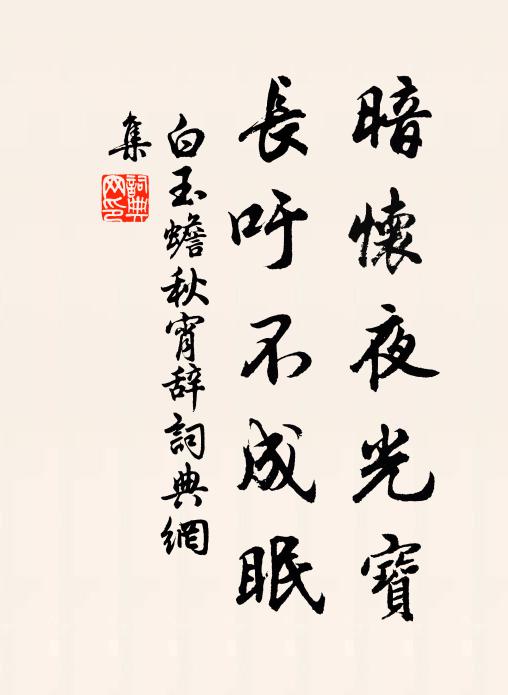 暗懷夜光寶
長吁不成眠
白玉蟾秋宵辭詞典網
集
詞典网印